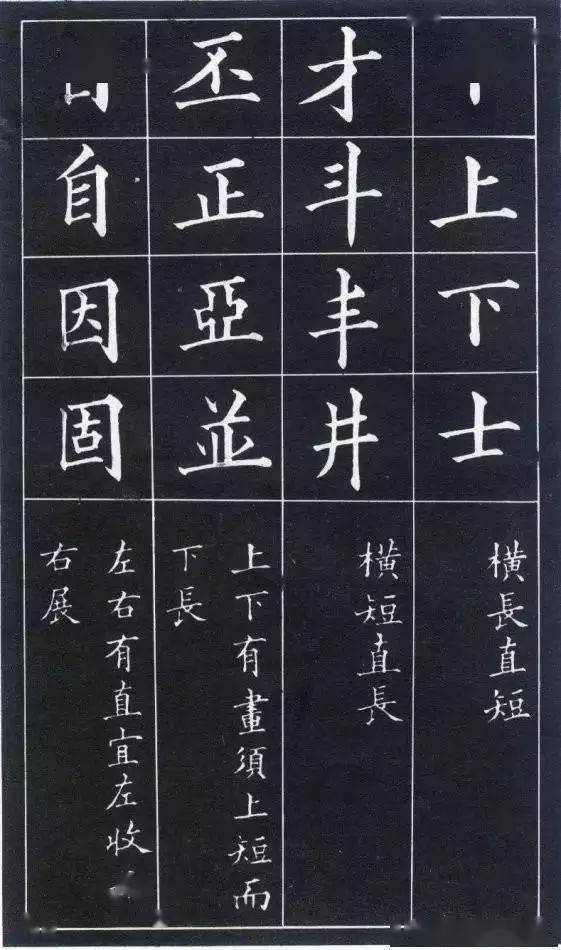 上下士
横長直短
才斗丰井
横短直長
丕正亞並
上下有畫須上短而
下長
自因固
左右有直宜左收
右展